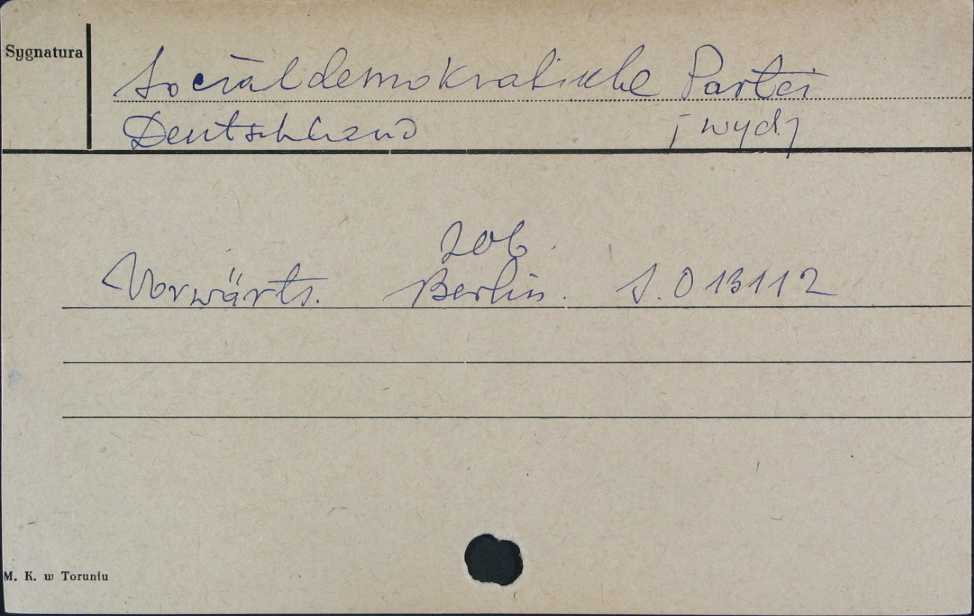 Sygnatura
Socialdemokratische Partei
Deutschland [wyd]
zob.
Vorwärts. Berlin. S. 013112
M. K. w Toruniu